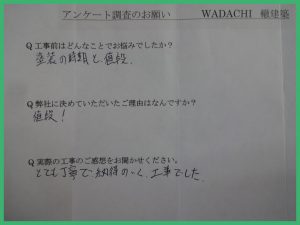 アンケート調査のお願い WADACHI 樋建築
Q 工事前はどんなことでお悩みでしたか?
塗装の時期と値段。
Q 弊社に決めていただいたご理由はなんですか?
値段!
Q 実際の工事のご感想をお聞かせください。
とても丁寧で納得のいく工事でした。